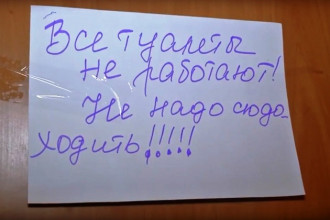 Все туалеты
не работают!
Не надо сюда
ходить!!!!!